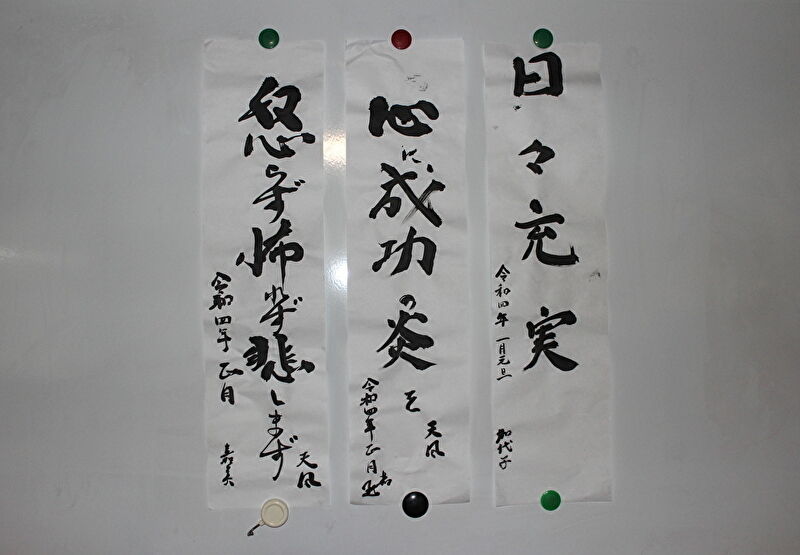 日々充実
令和四年 一月元旦
加代子
心に成功の炎を
天風
令和四年正月
怒らず怖れず悲しまず
天風
令和四年正月